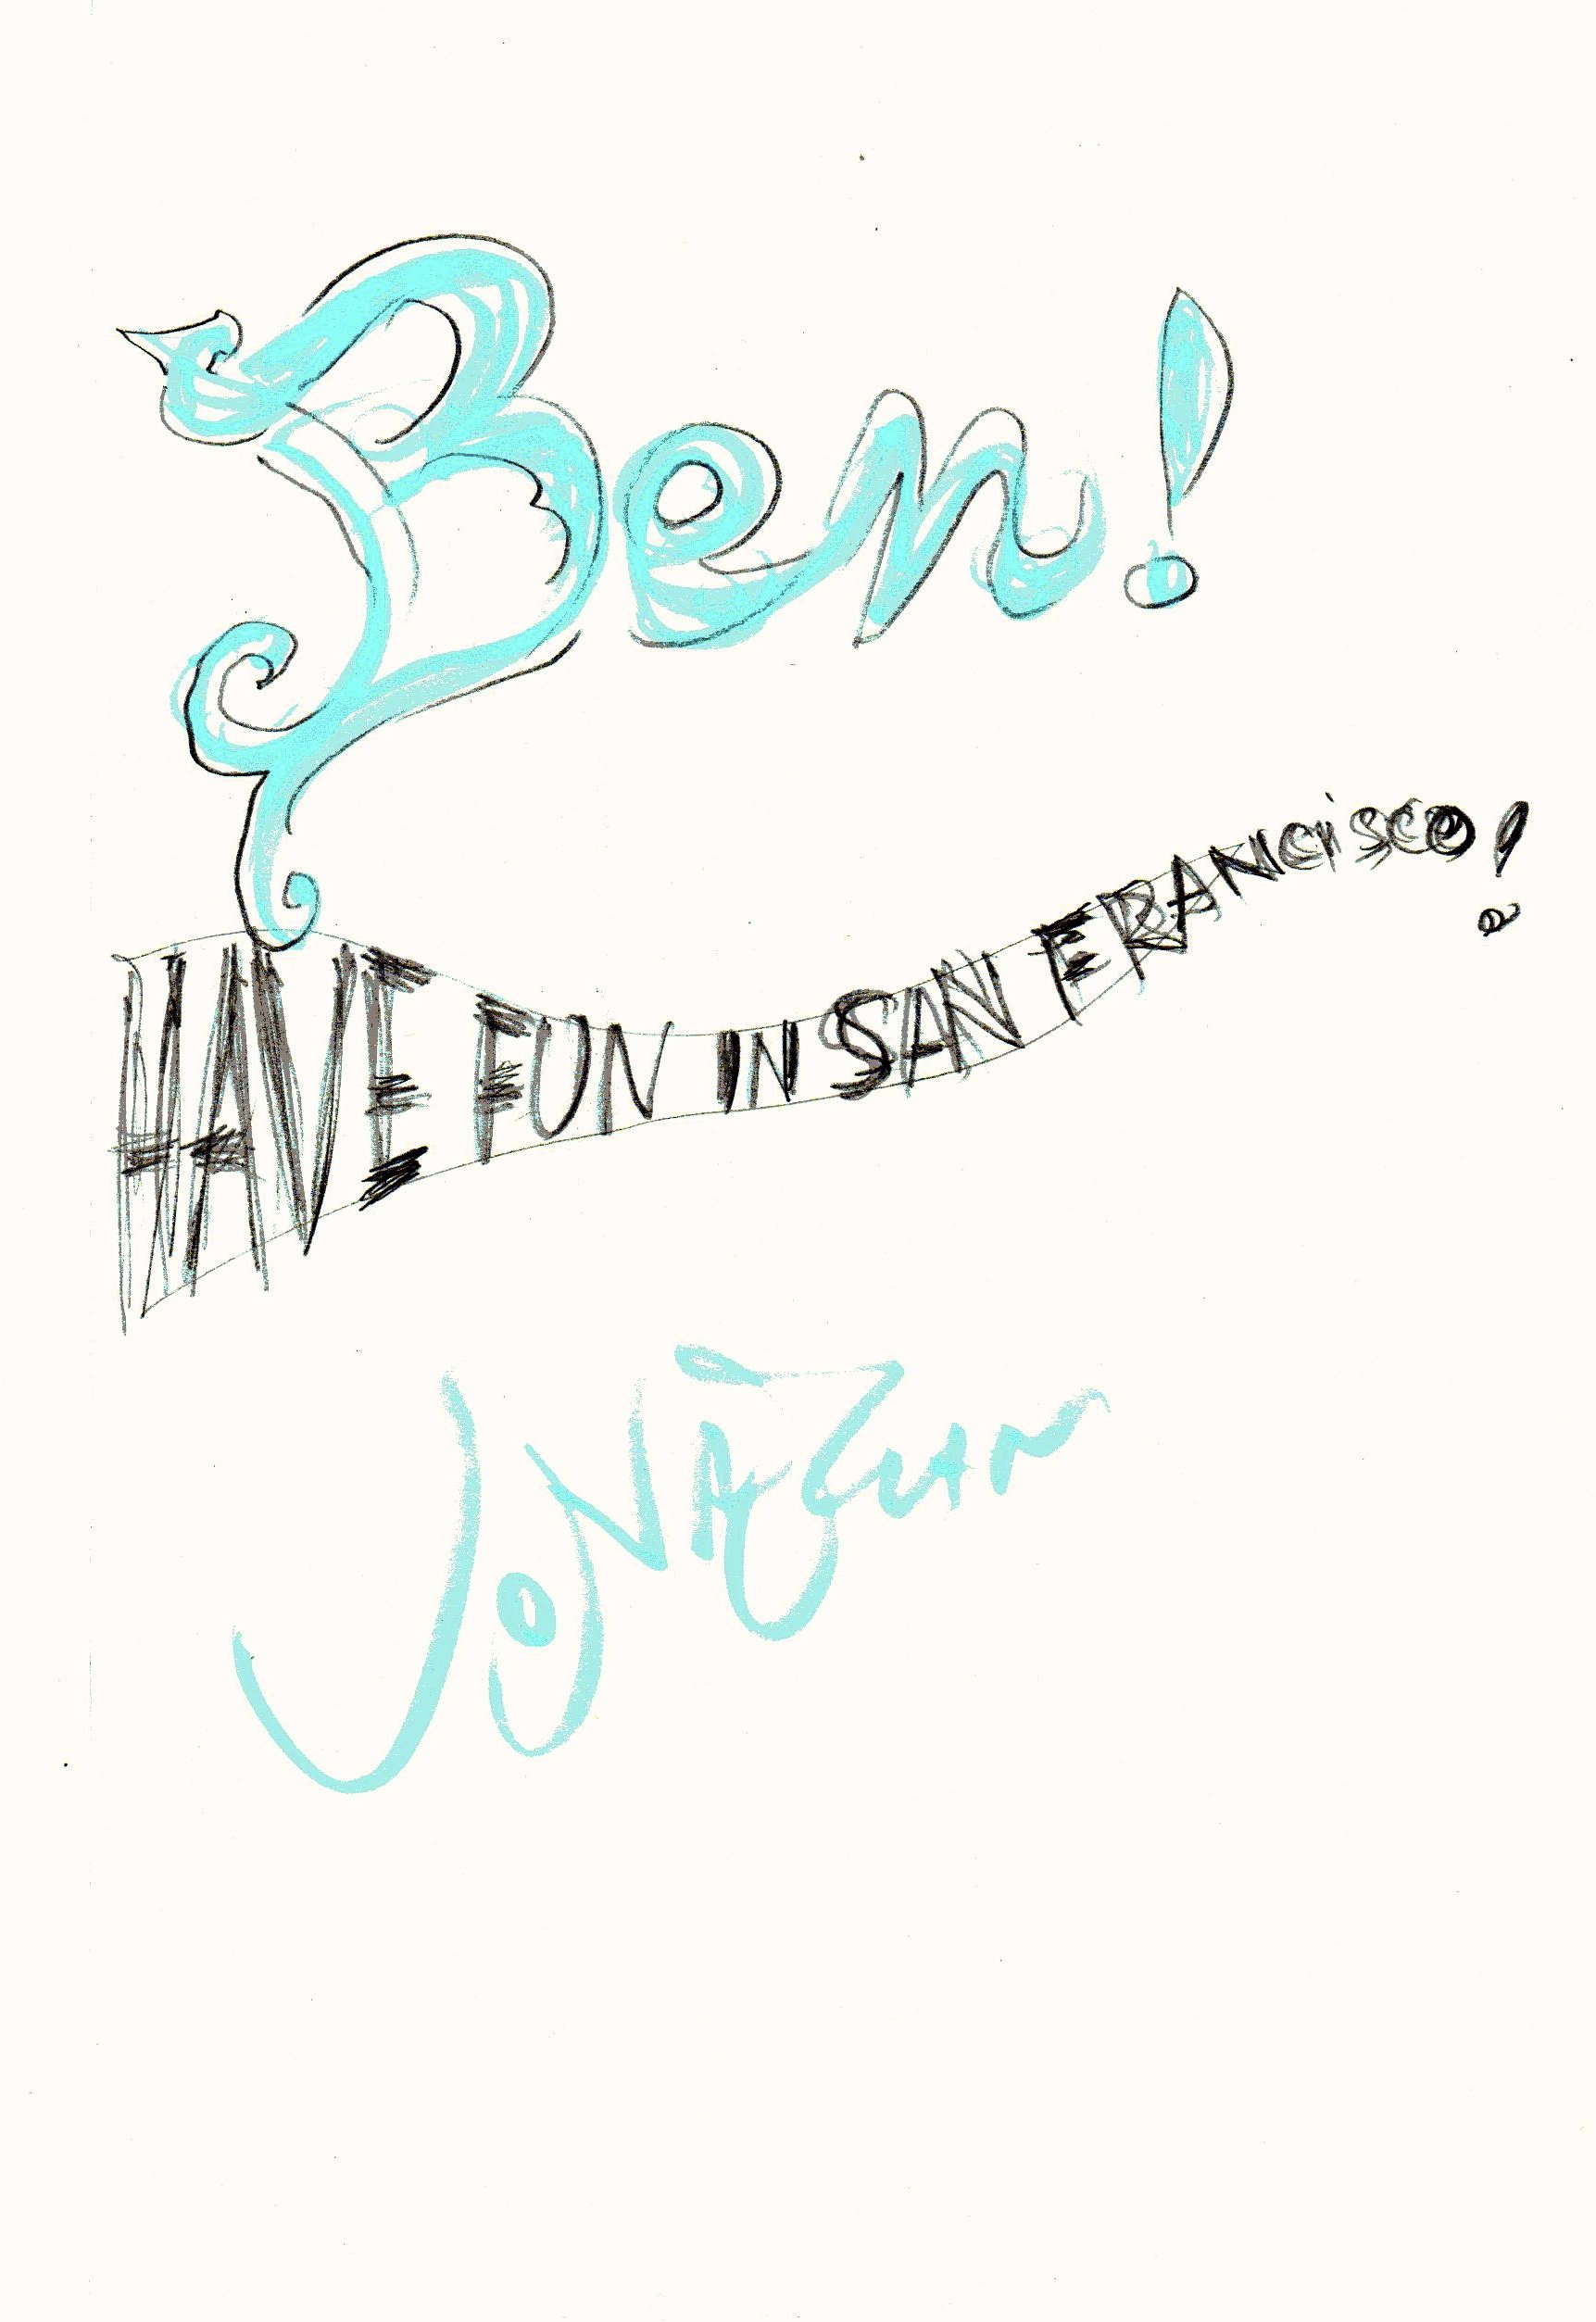 Ben!
HAVE FUN IN SAN FRANCiSCO!